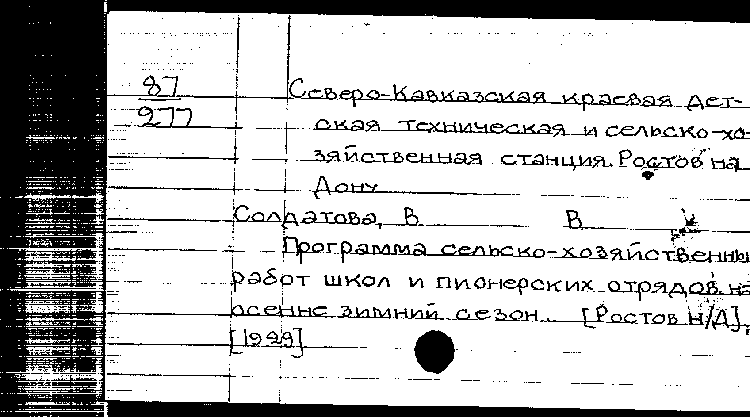 87
277
Северо-Кавказская краевая дет-
ская техническая и сельско-хо-
зяйственная станция. Ростов на
Дону
Солдатова, В. В.
Программа сельско-хозяйственны
работ школ и пионерских отрядов на
осенне зимний сезон.. [Ростов н/Д],
[1929]